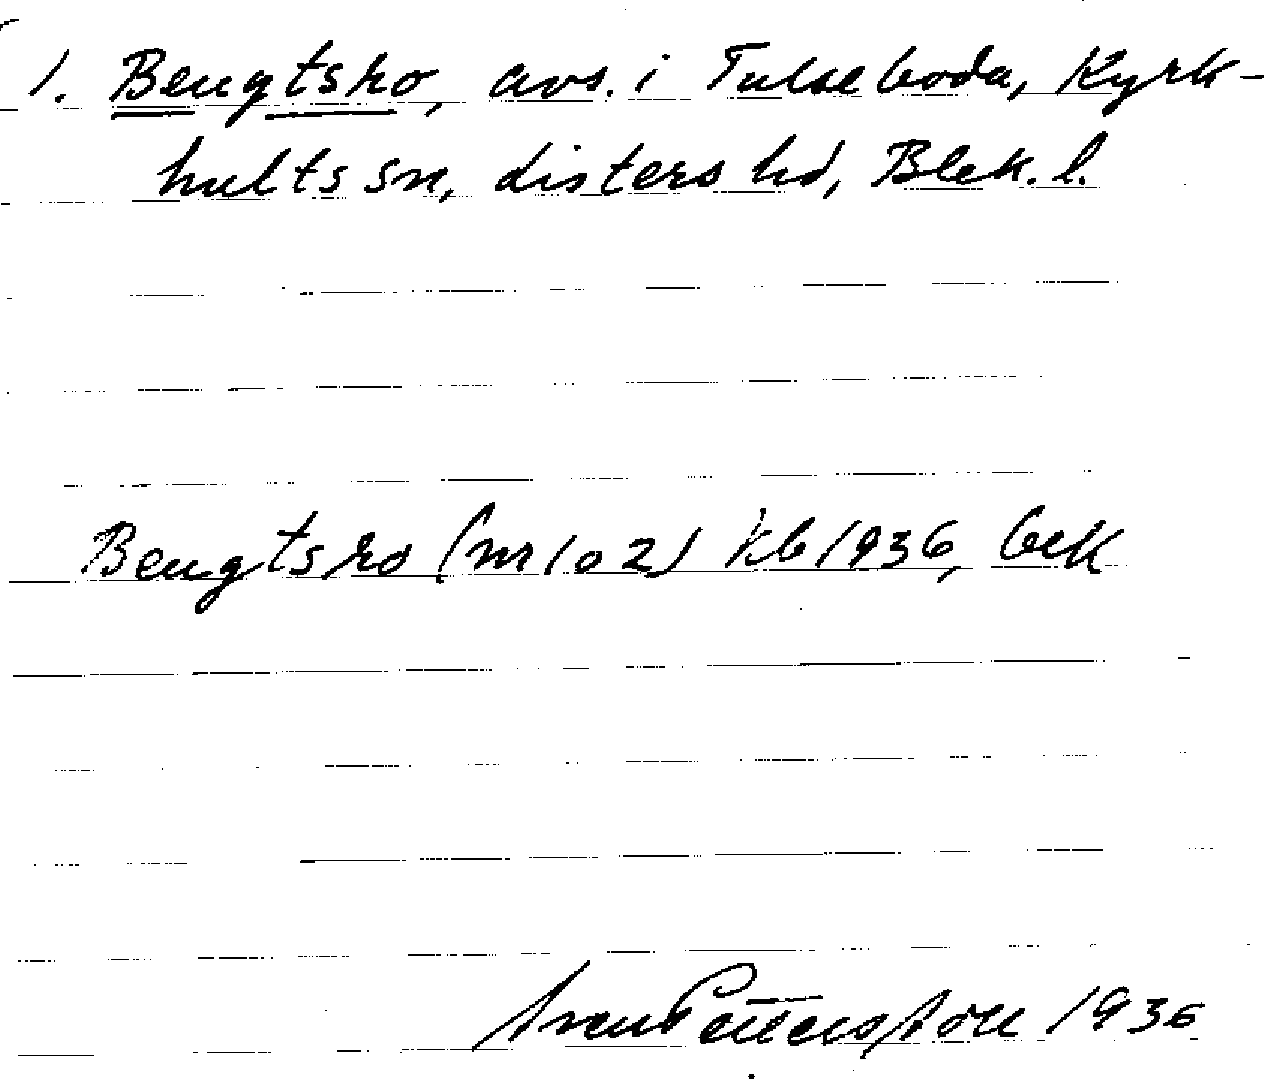 1. Bengtsro, avs. i Tulseboda, Kyrk-
hults sn, Listers hd, Blek. l.
Bengtsro (nr 102) kb 1936, bek
Sven Petersson 1936